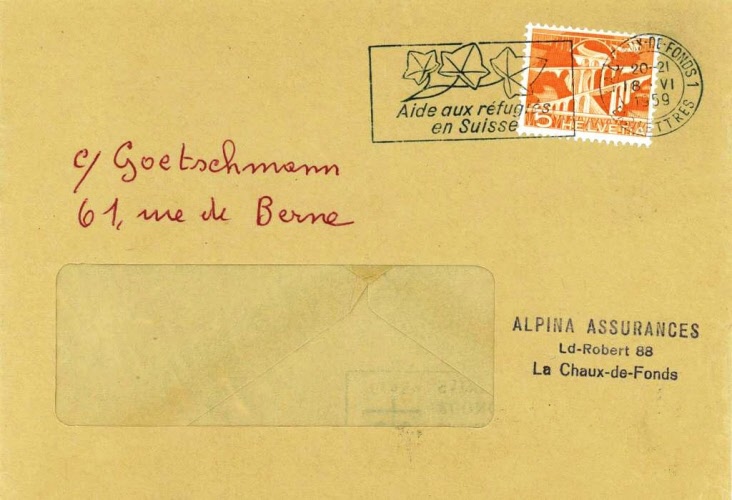 Aide aux réfugiés
en Suisse
X-DE-FONDS 1
20-21
8. VI
1959
LETTRES
5 HELVETIA
c/ Goetschmann
61, rue de Berne
ALPINA ASSURANCES
Ld-Robert 88
La Chaux-de-Fonds